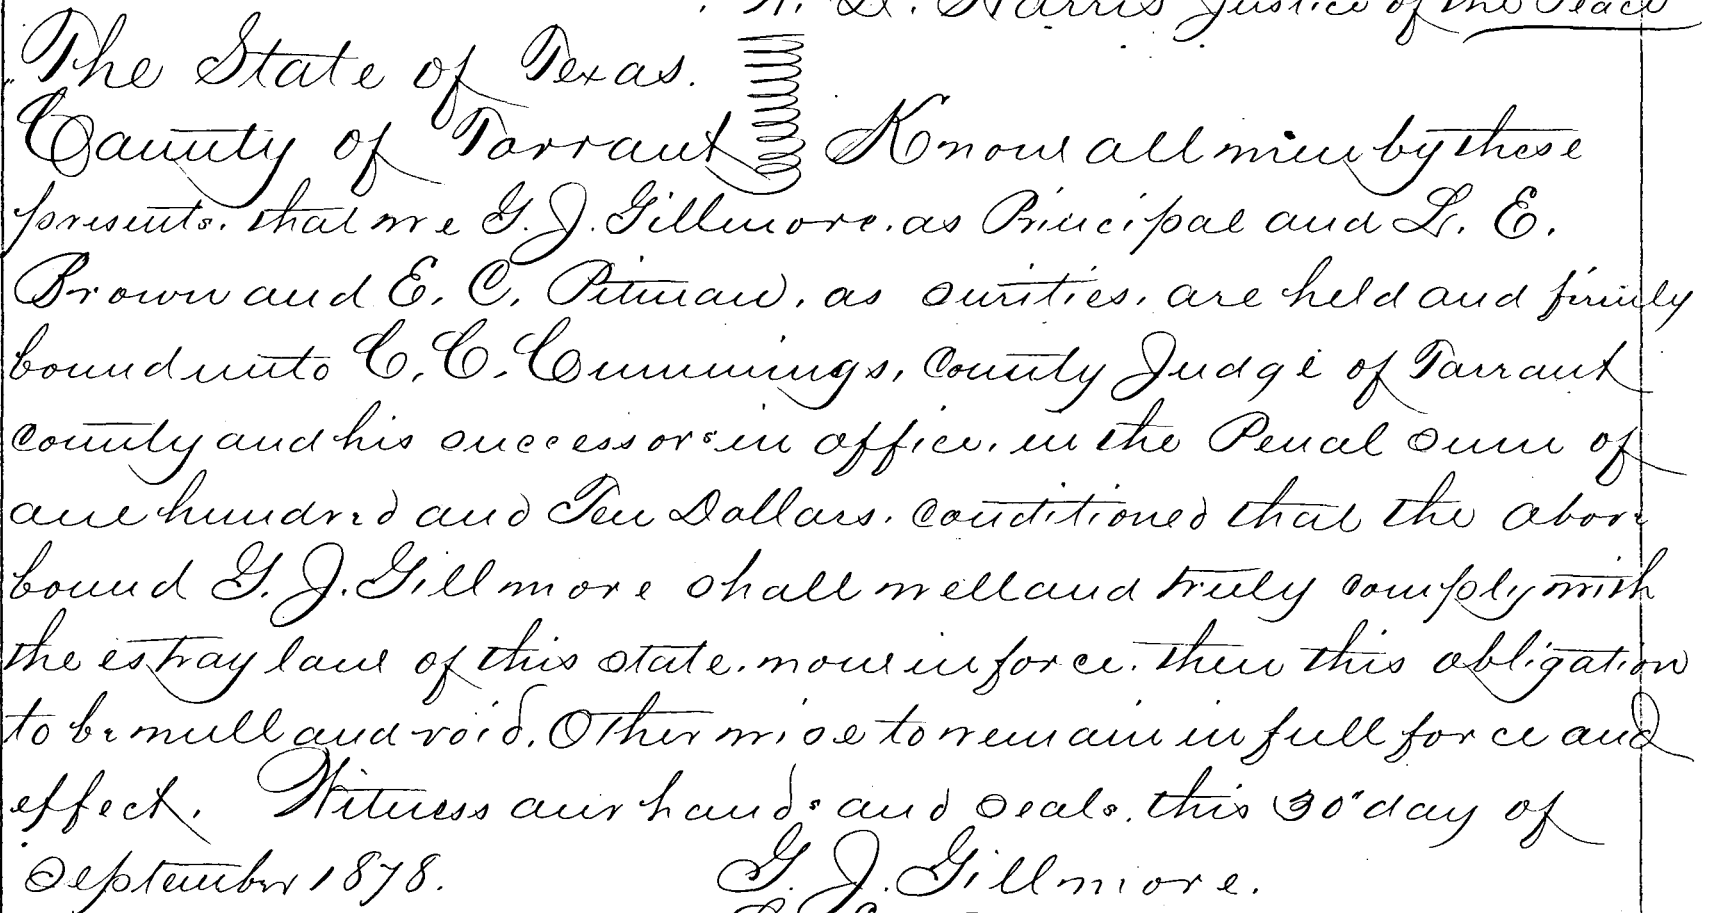 H. D. Harris Justice of the Peace
The State of Texas.
County of Tarrant Know all men by these
presents. that we G. J. Gillmore. as Principal and L. E.
Brown and E. C. Pitman. as surities. are held and firmly
bound unto C. C. Cummings, County Judge of Tarrant
County and his successors in office. in the Penal sum of
one hundred and Ten Dollars. conditioned that the above
bound G. J. Gillmore shall well and truly comply with
the estray law of this state. now in force. then this obligation
to be null and void. Otherwise to remain in full force and
effect. Witness our hands and seals. this 30" day of
September 1878.
G. J. Gillmore.